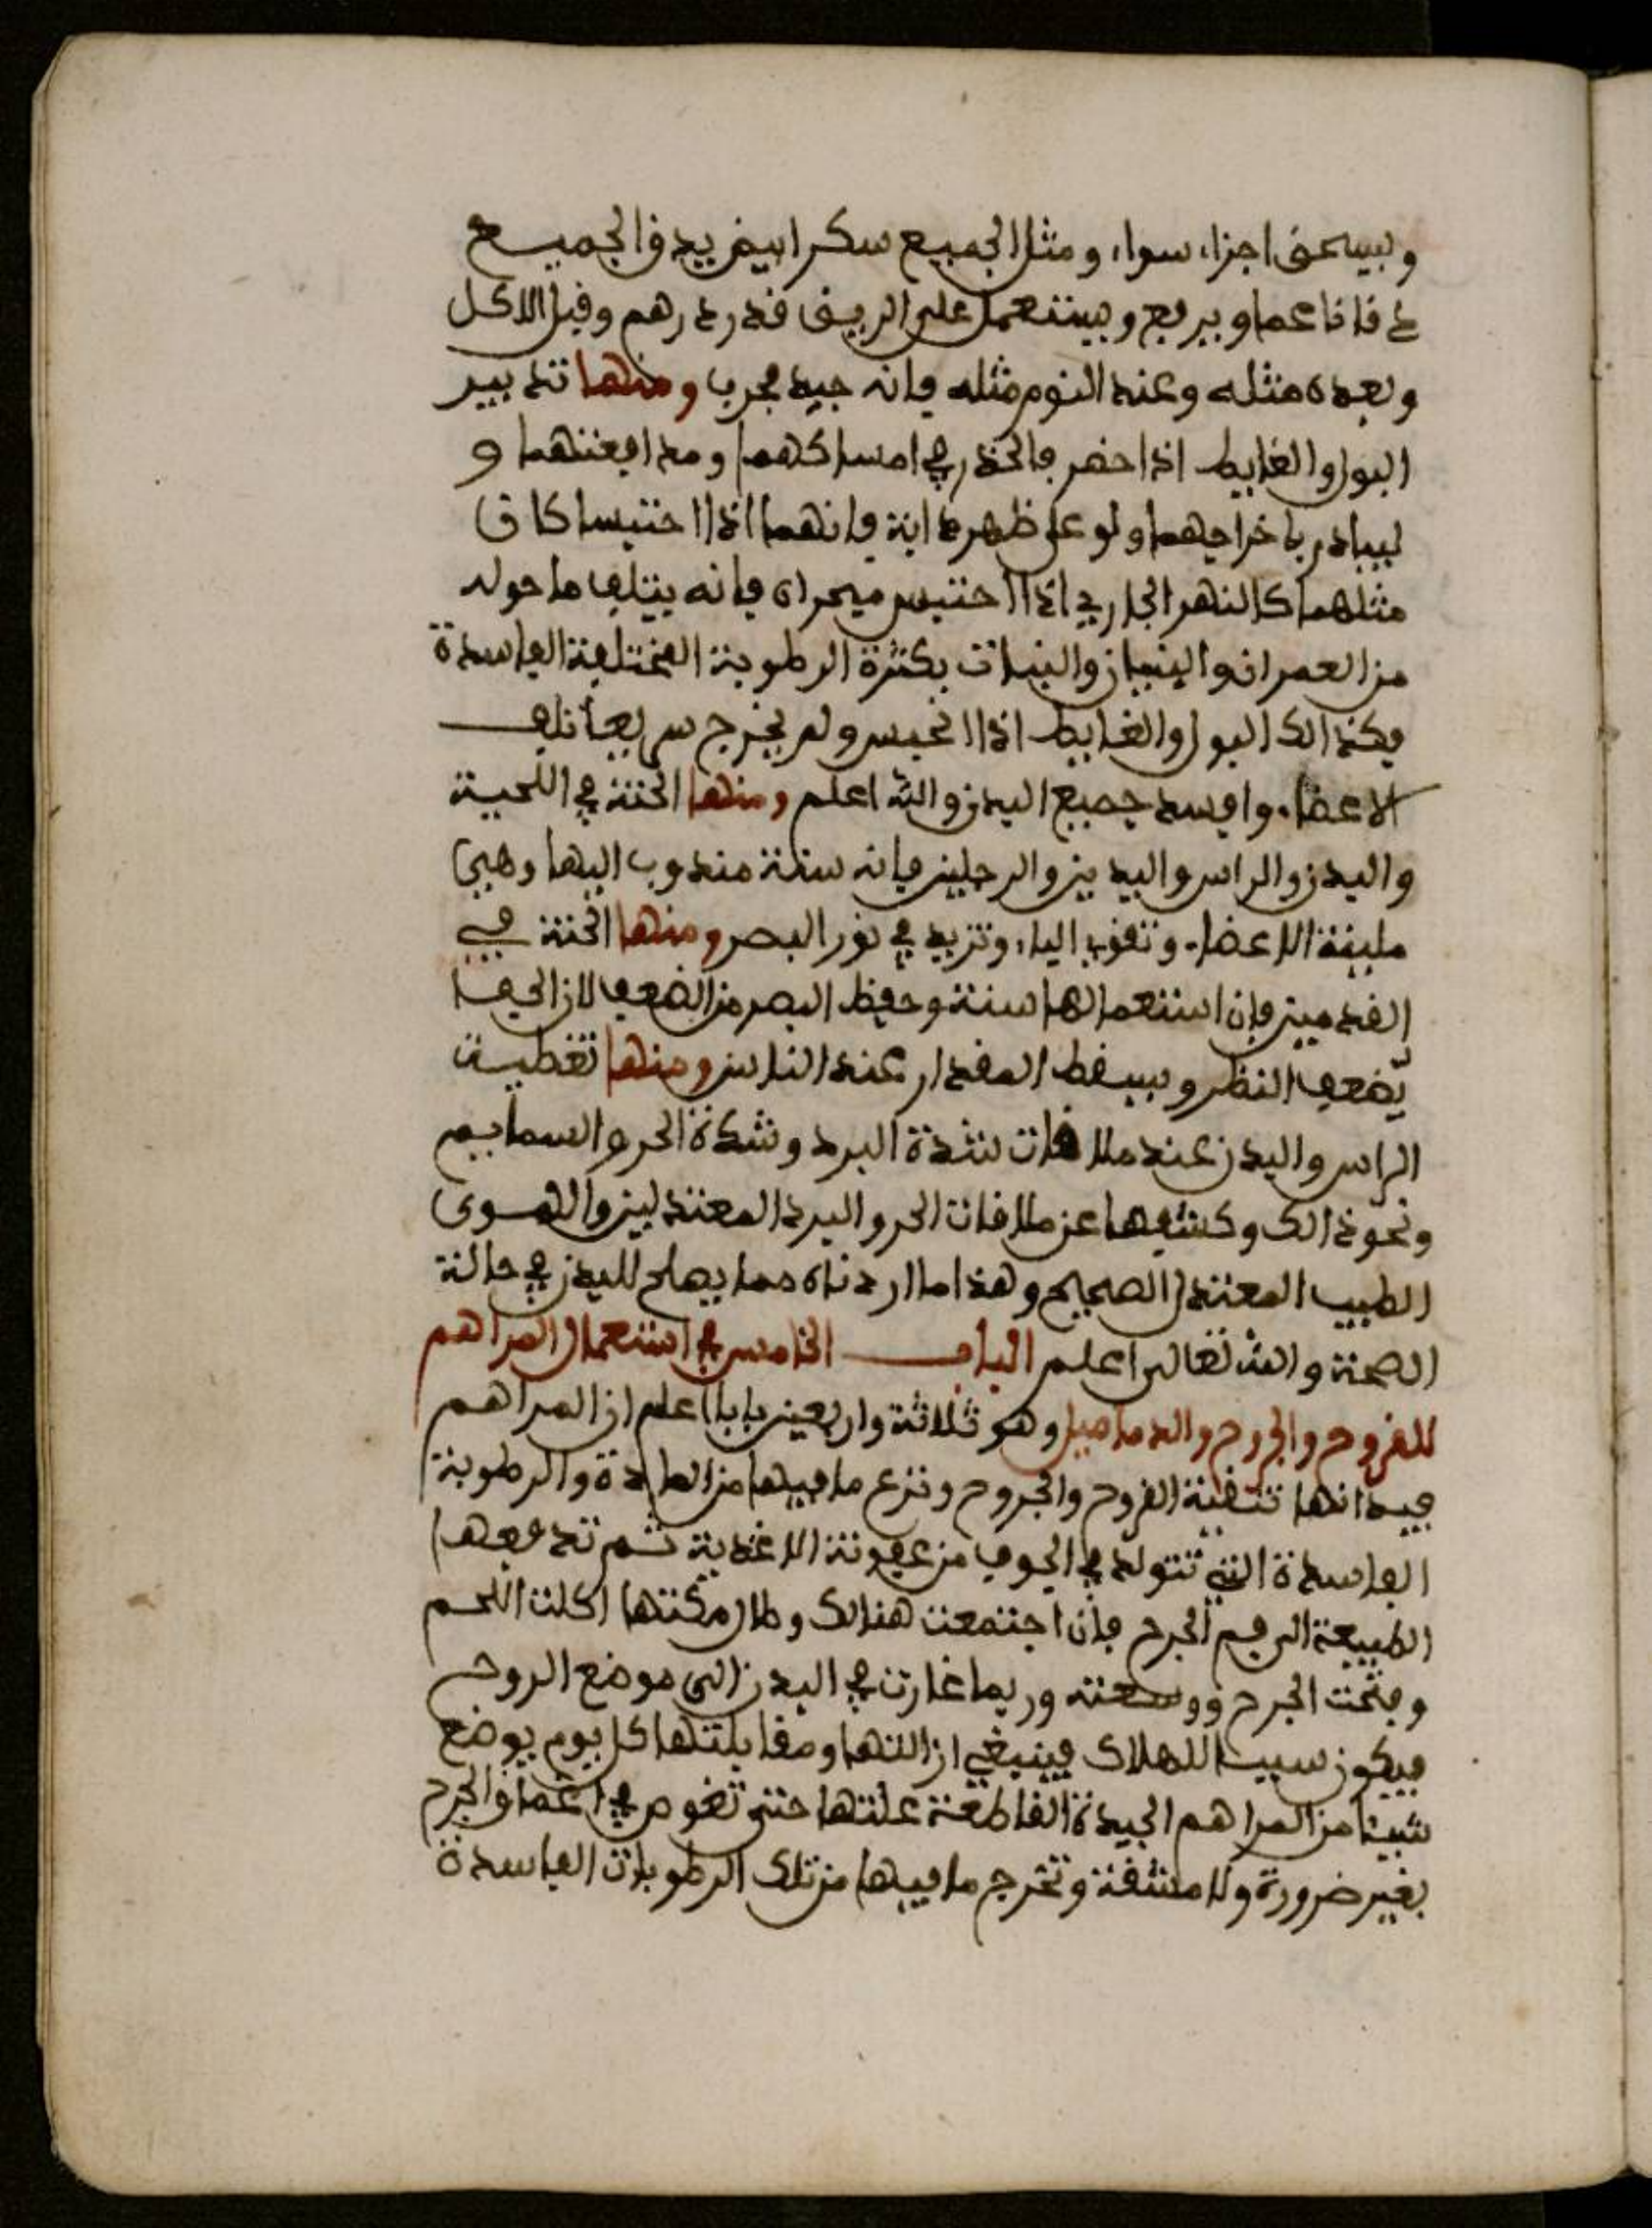 ويسحق اجزاء سواء ومثل الجميع سكر ابيض يدق الجميع
دقا ناعما ويرفع ويستعمل على الريق قدر درهم وقبل الاكل
وبعده مثله وعند النوم مثله فانه جيد مجرب ومنها تدبير
البول والغايط اذا حضر فالحذر في امساكهما ومدافعتهما و
ليبادر باخراجهما ولو على ظهر دابة فانهما اذا احتبسا كان
مثلهما كالنهر الجاري اذا احتبس مجراه فانه يتلف ما حوله
من العمران والبنيان والنبات بكثرة الرطوبة المختلفة الفاسدة
فكذالك البول والغايط اذا انحبس ولم يخرج سريعا تلف
الاعضاء وافسد جميع البدن والله اعلم ومنها الحنة في اللحية
والبدن والراس واليدين والرجلين فانه سنة مندوب اليها وهي
ملينة الاعضاء وتقوي الباء وتزيد في نور البصر ومنها الحنة في
القدمين فان استعمالها سنة وحفظ البصر من الضعف لان الحفا
يضعف النظر ويسقط المقدار عند الناس ومنها تغطية
الراس والبدن عند ملاقات شدة البرد وشدة الحر والسمايم
ونحو ذالك وكشفها عن ملاقات الحر والبرد المعتدلين والهوى
الطيب المعتدل الصحيح وهذا ما اردناه مما يصلح للبدن في حالة
الصحة والله تعالى اعلم الباب الخامس في استعمال المراهم
للقروح والجروح والدماميل وهو ثلاثة واربعين بابا اعلم ان المراهم
فيدانها تنقية القروح والجروح ونزع ما فيها من المادة والرطوبة
الفاسدة التي تتولد في الجوف من عفونة الاغذية ثم تدفعها
الطبيعة الى فم الجرح فان اجتمعت هنالك وطال مكثها اكلت اللحم
وفتحت الجرح ووسعته وربما غارت في البدن الى موضع الروح
فيكون سببا للهلاك فينبغي ازالتها ومقابلتها كل يوم يوضع
شيئا من المراهم الجيدة القاطعة علتها حتى تغوص في اعماق الجرح
بغير ضرورة ولا مشقة وتخرج ما فيها من تلك الرطوبات الفاسدة